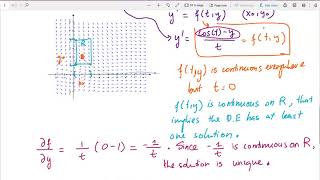 y' = f(t,y) (x₀,y₀)
y' = cos(t)-y / t = f(t,y)
f(t,y) is continuous everywhere
but t=0
f(t,y) is continuous on R, that
implies the D.E has at least
one solution.
∂f/∂y = 1/t (0-1) = -1/t. Since -1/t is continuous on R,
the solution is unique.